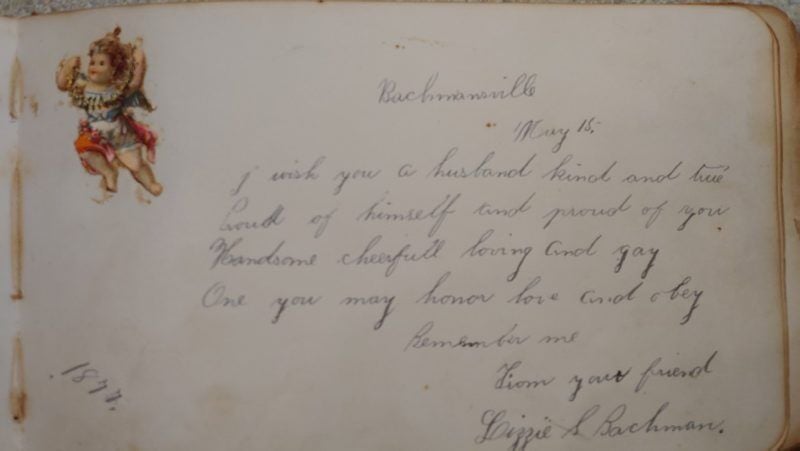 Bachmansville
May 15.
I wish you a husband kind and true
Proud of himself and proud of you
Handsome cheerfull loving and gay
One you may honor love and obey
Remember me
From your friend
Lizzie S Bachman.
1877.